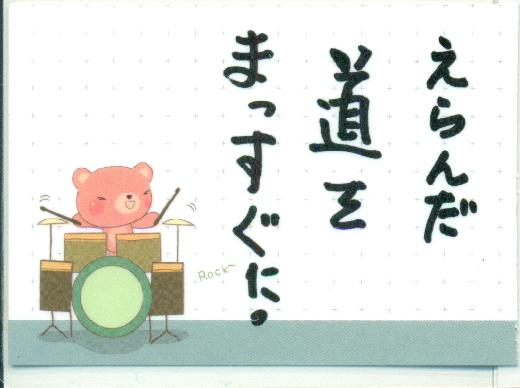 えらんだ
道を
まっすぐに。
Rock~